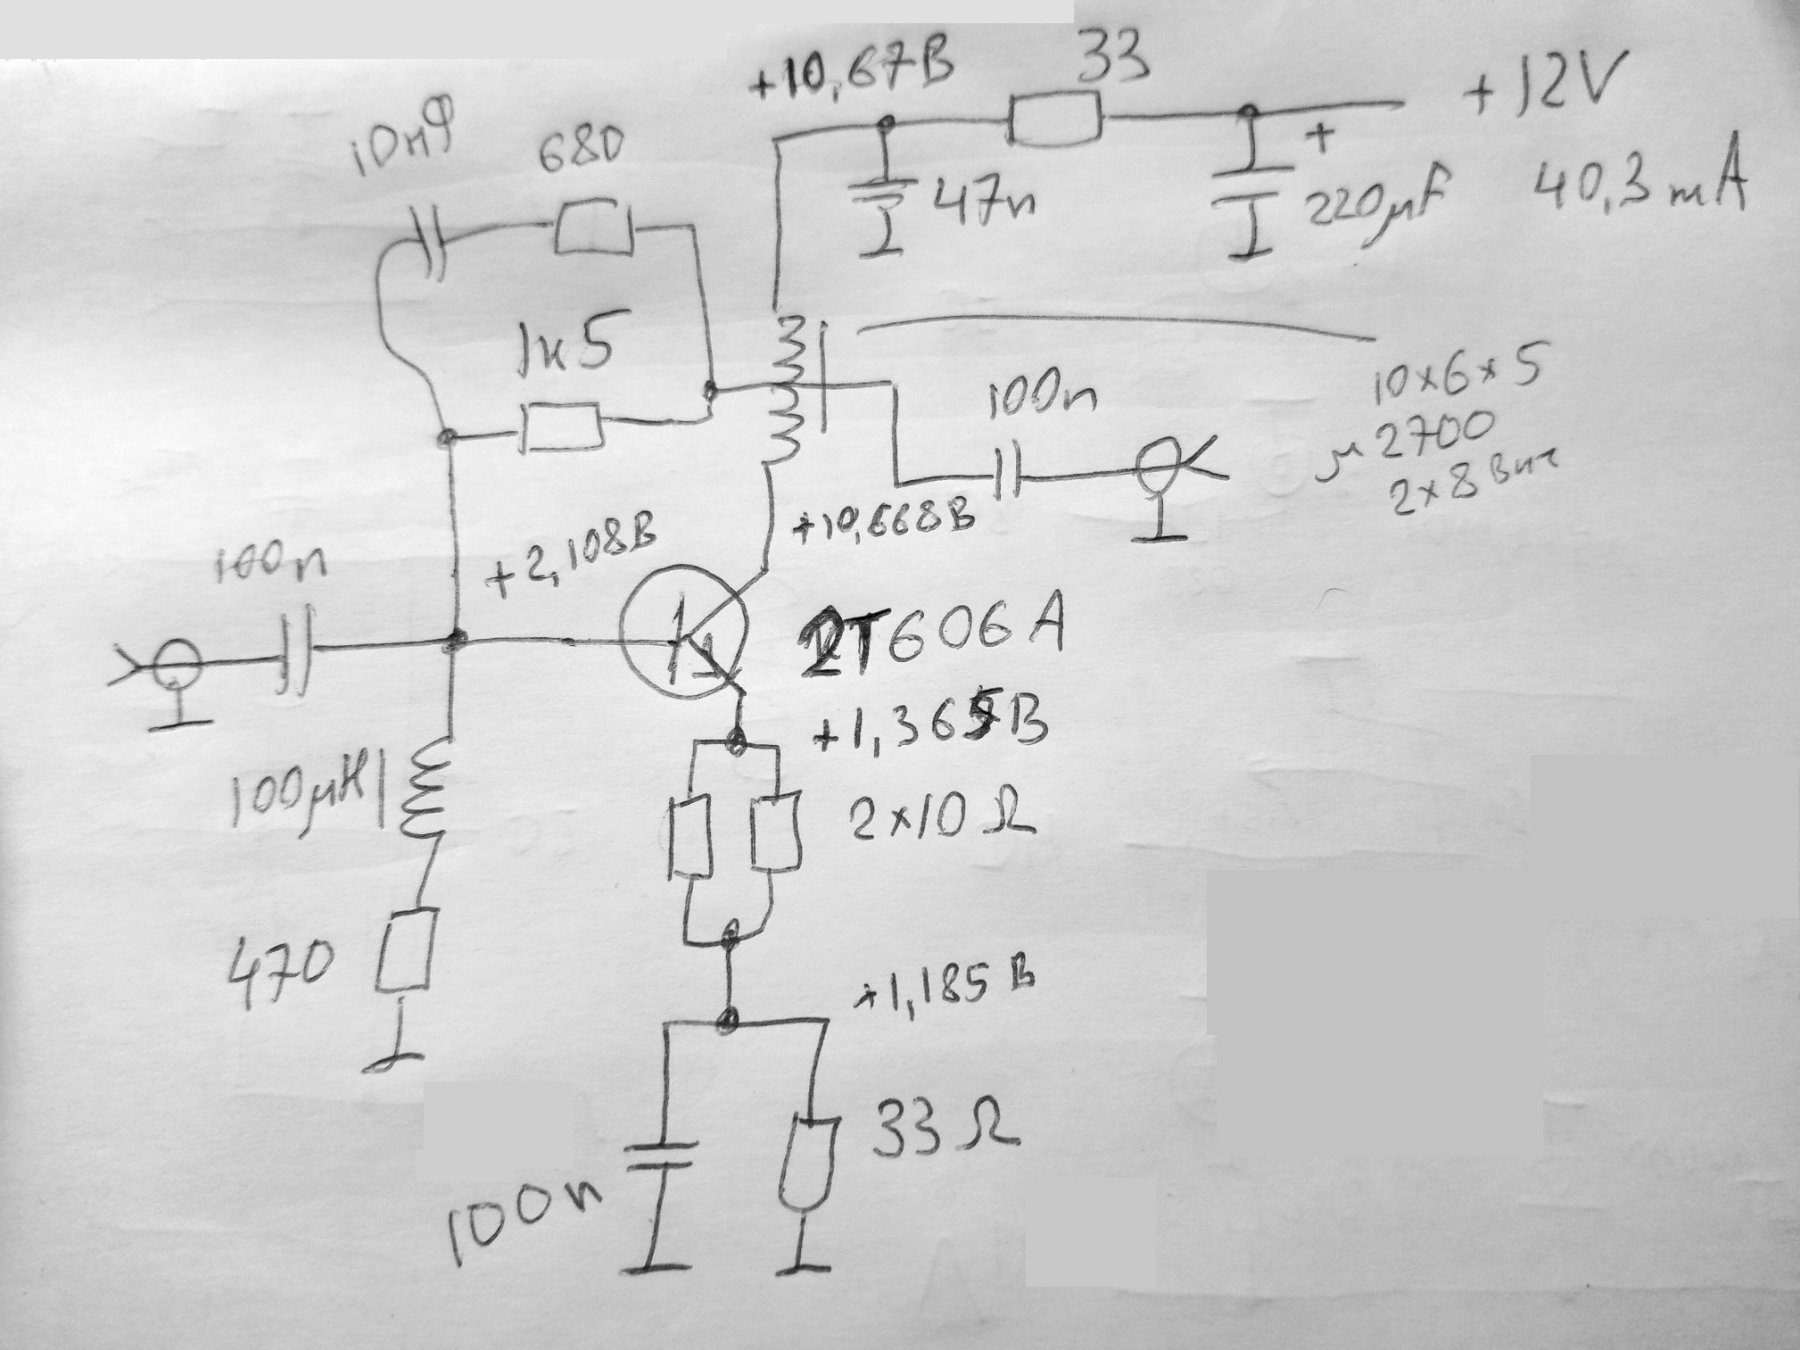 +10,67В
33
+12V
10нФ
680
47n
+
220µF
40,3 mA
1к5
100n
10×6×5
µ2700
2×8 Вит
+10,668В
100n
+2,108В
2Т606А
+1,365В
100µH
2×10 Ω
470
+1,185 В
33 Ω
100n